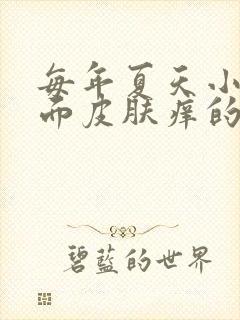 每年夏天小
而皮肤痒的
碧蓝的世界